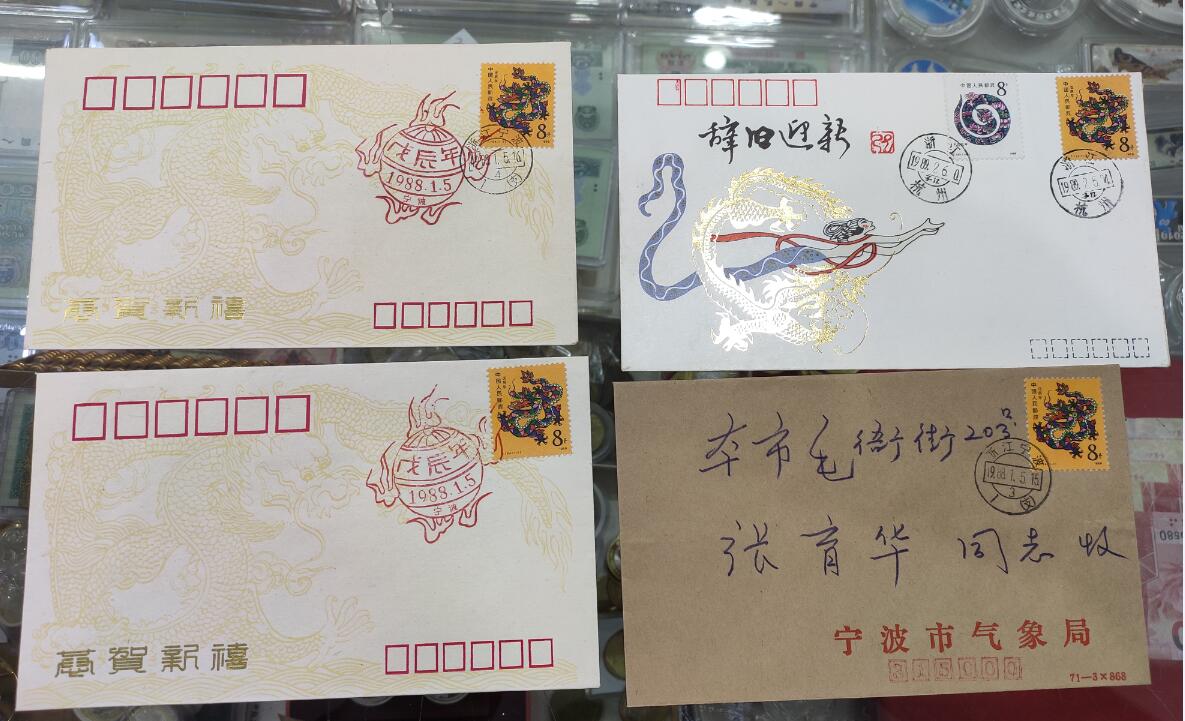 中国人民邮政
8分
戊辰年
1988.1.5
宁波
恭賀新禧
辞旧迎新
中国人民邮政
8分
中国人民邮政
8分
浙江
杭州
浙江
杭州
中国人民邮政
8分
戊辰年
1988.1.5
宁波
恭賀新禧
中国人民邮政
8分
本市毛衙街203号
浙江宁波
1988.1.5.16
3
张育华 同志收
宁波市气象局
315000
71—3×868